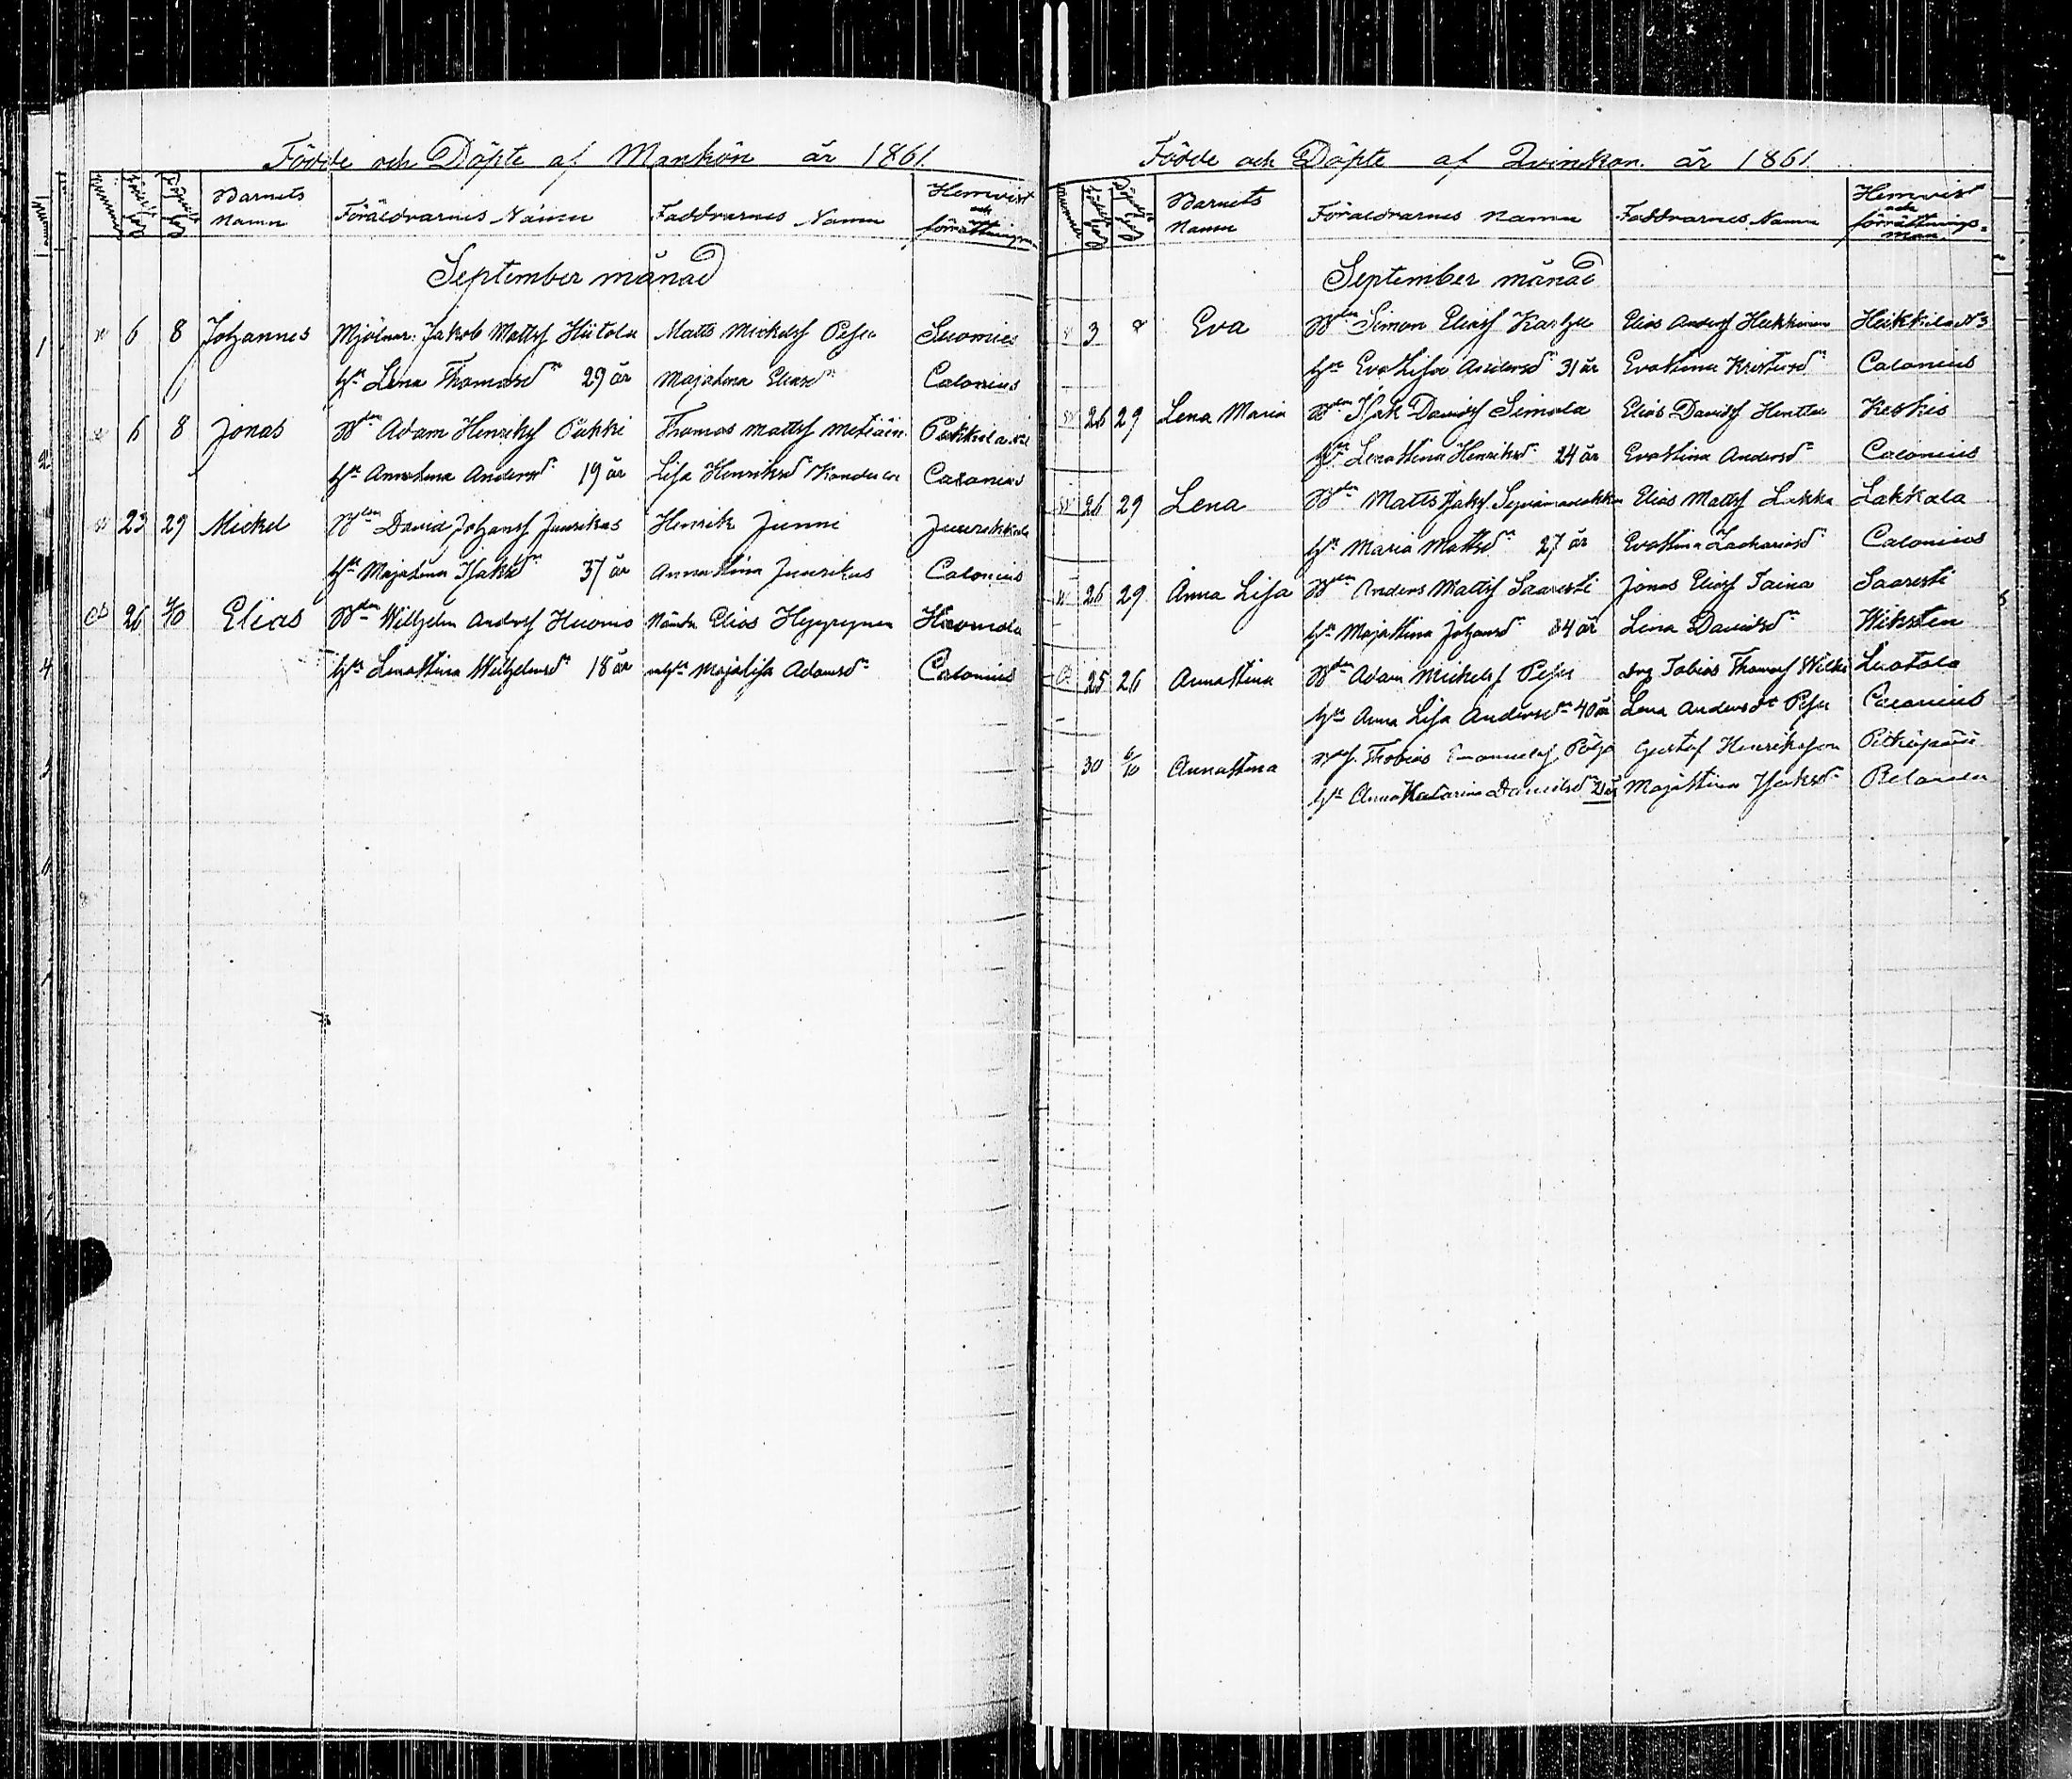 Födde och Döpte af Mankön år 1861.
Barnets Namn Föräldrarnes Namn Faddrarnes Namn Hemvist och förrättningsm
September månad
6 8 Johannes Mjölnar: Jakob Mattsf Hiitola Matts Mickelsf Pesu Suomies
h:n Lena Thomasd:r 29 år Majalena Eliasd:r Calonius
6 8 Jonas Adam Henriksf Pukki Thomas Mattsf Pukkila
h:n Annalena Andersd:r 19 år Lisa Henriksd:r Calonius
23 29 Mickel David Johansf Juurikas Henrik Junni Juurikkala
h:n Majalena Isaksd:r 37 år Annastina Juurikas Calonius
26 Elias Wilhelm Andersf Huomo Elias Hyyrynen Huomola
h:n Lenastina Wilhelmsd:r 18 år Majalisa Adamsd:r Calonius
Födde och Döpte af Qvinkön. år 1861
Barnets Namn Föräldrarnes Namn Faddrarnes Namn Hemvist och förrättnings=man.
September månad
3 8 Eva Simon Eliasf Karhu Elias Andersf Heikkinen Heikkilä N 3
h:n Eva Lisa Andersd:r 31 år Evastina Calonius
26 29 Lena Maria Isak Davidsf Simola Elias Davidsf Keskis
h:n Lenastina Henriksd:r 24 år Evastina Andersd:r Calonius
26 29 Lena Matts Isaksf Elias Mattsf Lakka Lakkala
h:n Maria Mattsd:r 27 år Evastina Zachariasd:r Calonius
26 29 Anna Lisa Anders Mattsf Saaresti Jonas Eliasf Taina Saaresti
h:n Majastina Johansd:r 34 år Lena Davidsd:r Wiksten
25 26 Annastina Adam Mickelsf Pesu drg Tobias Thomasf Luotola
h:n Anna Lisa Andersd:r 40 år Lena Andersd:r Pesu Calonius
30 6/10 Annastina Thobias Emanuelsf Gustaf Henriksson
h:n Anna Katarina Danielsd:r Majastina Isaksd:r